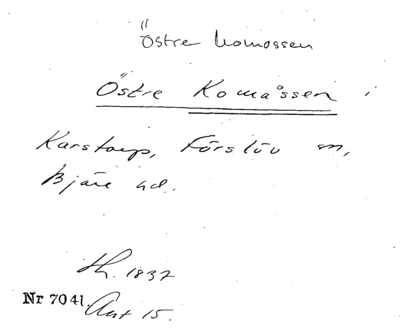 Östre komossen
Östre Komåssen i
Karstorp, Förslöv sn,
Bjäre hd.
Sk. 1837
Nr 7041 Akt 15.